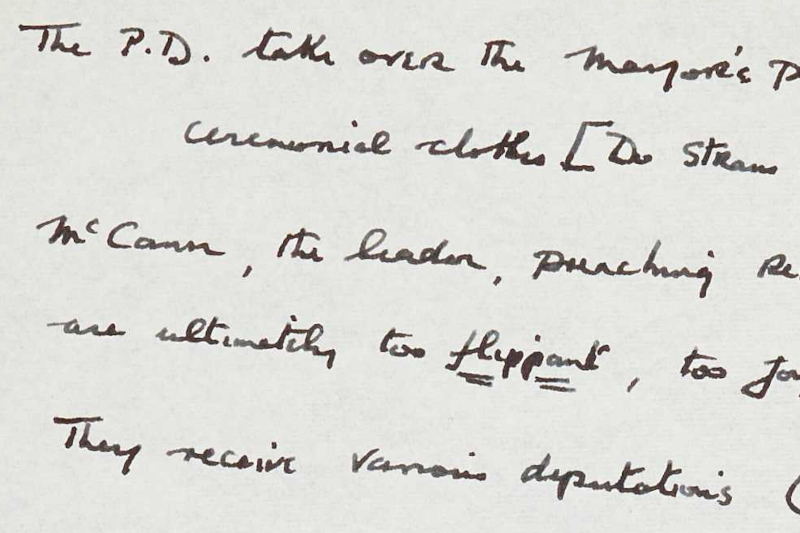 The P.D. take over the Mayor's P
ceremonial clothes [Do Straus
McCann, the leader, preaching Re
are ultimately too flippant, too
They receive various deputations (